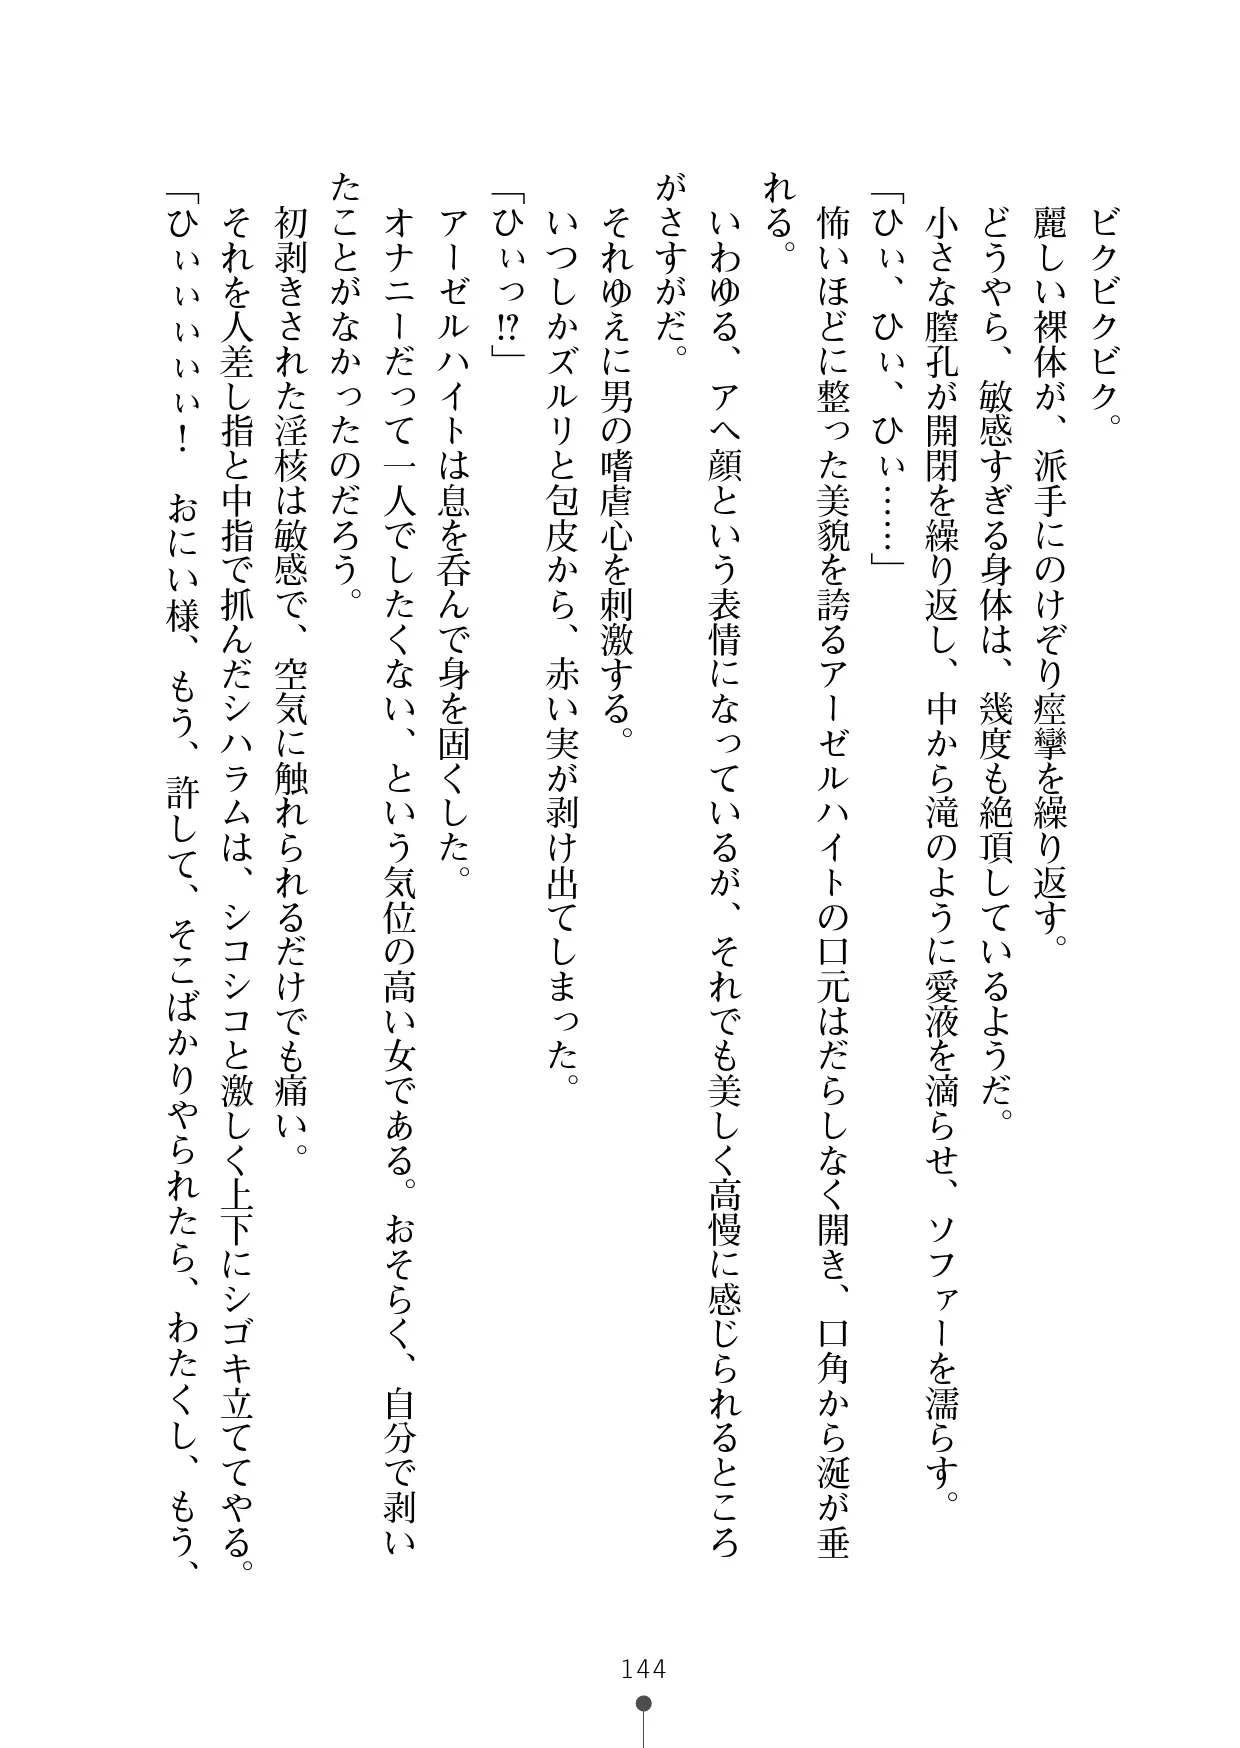 ビクビクビク。
麗しい裸体が、派手にのけぞり痙攣を繰り返す。
どうやら、敏感すぎる身体は、幾度も絶頂しているようだ。
小さな膣孔が開閉を繰り返し、中から滝のように愛液を滴らせ、ソファーを濡らす。
「ひぃ、ひぃ、ひぃ……」
怖いほどに整った美貌を誇るアーゼルハイトの口元はだらしなく開き、口角から涎が垂
れる。
いわゆる、アヘ顔という表情になっているが、それでも美しく高慢に感じられるところ
がさすがだ。
それゆえに男の嗜虐心を刺激する。
いつしかズルリと包皮から、赤い実が剥け出てしまった。
「ひぃっ!?」
アーゼルハイトは息を呑んで身を固くした。
オナニーだって一人でしたくない、という気位の高い女である。おそらく、自分で剥い
たことがなかったのだろう。
初剥きされた淫核は敏感で、空気に触れられるだけでも痛い。
それを人差し指と中指で抓んだシハラムは、シコシコと激しく上下にシゴキ立ててやる。
「ひぃぃぃぃぃ！　おにい様、もう、許して、そこばかりやられたら、わたくし、もう、
144